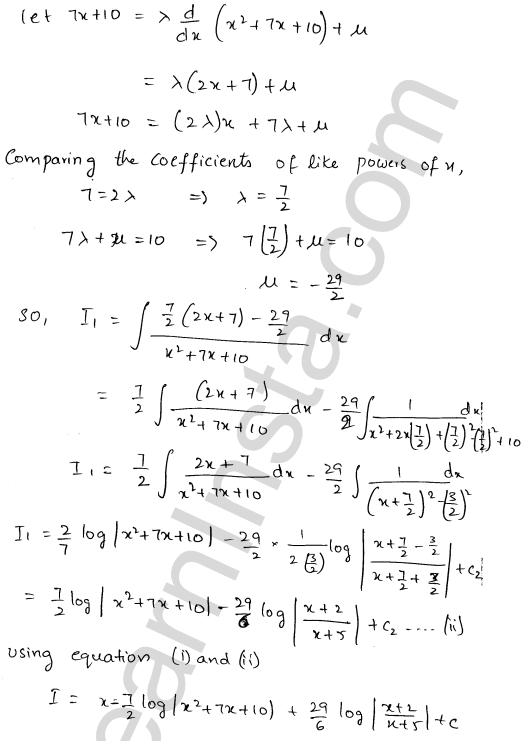 Let 7x+10 = λ d/dx (x²+7x+10)+μ
= λ(2x+7)+μ
7x+10 = (2λ)x + 7λ+μ
Comparing the coefficients of like powers of x,
7=2λ ⇒ λ = 7/2
7λ+μ=10 ⇒ 7(7/2)+μ=10
μ = -29/2
so, I₁ = ∫ (7/2 (2x+7) - 29/2)/(x²+7x+10) dx
= 7/2 ∫ (2x+7)/(x²+7x+10) dx - 29/2 ∫ 1/(x²+2x(7/2)+(7/2)²-(7/2)²+10) dx
I₁ = 7/2 ∫ (2x+7)/(x²+7x+10) dx - 29/2 ∫ 1/((x+7/2)²-(3/2)²) dx
I₁ = 2/7 log|x²+7x+10| - 29/2 × 1/(2(3/2)) log |(x+7/2-3/2)/(x+7/2+3/2)| +c₂
= 7/2 log| x²+7x+10| - 29/6 log |(x+2)/(x+5)| + c₂ ..... (ii)
using equation (i) and (ii)
I = x-7/2 log|x²+7x+10) + 29/6 log |(x+2)/(x+5)| +c
earnInsta.com